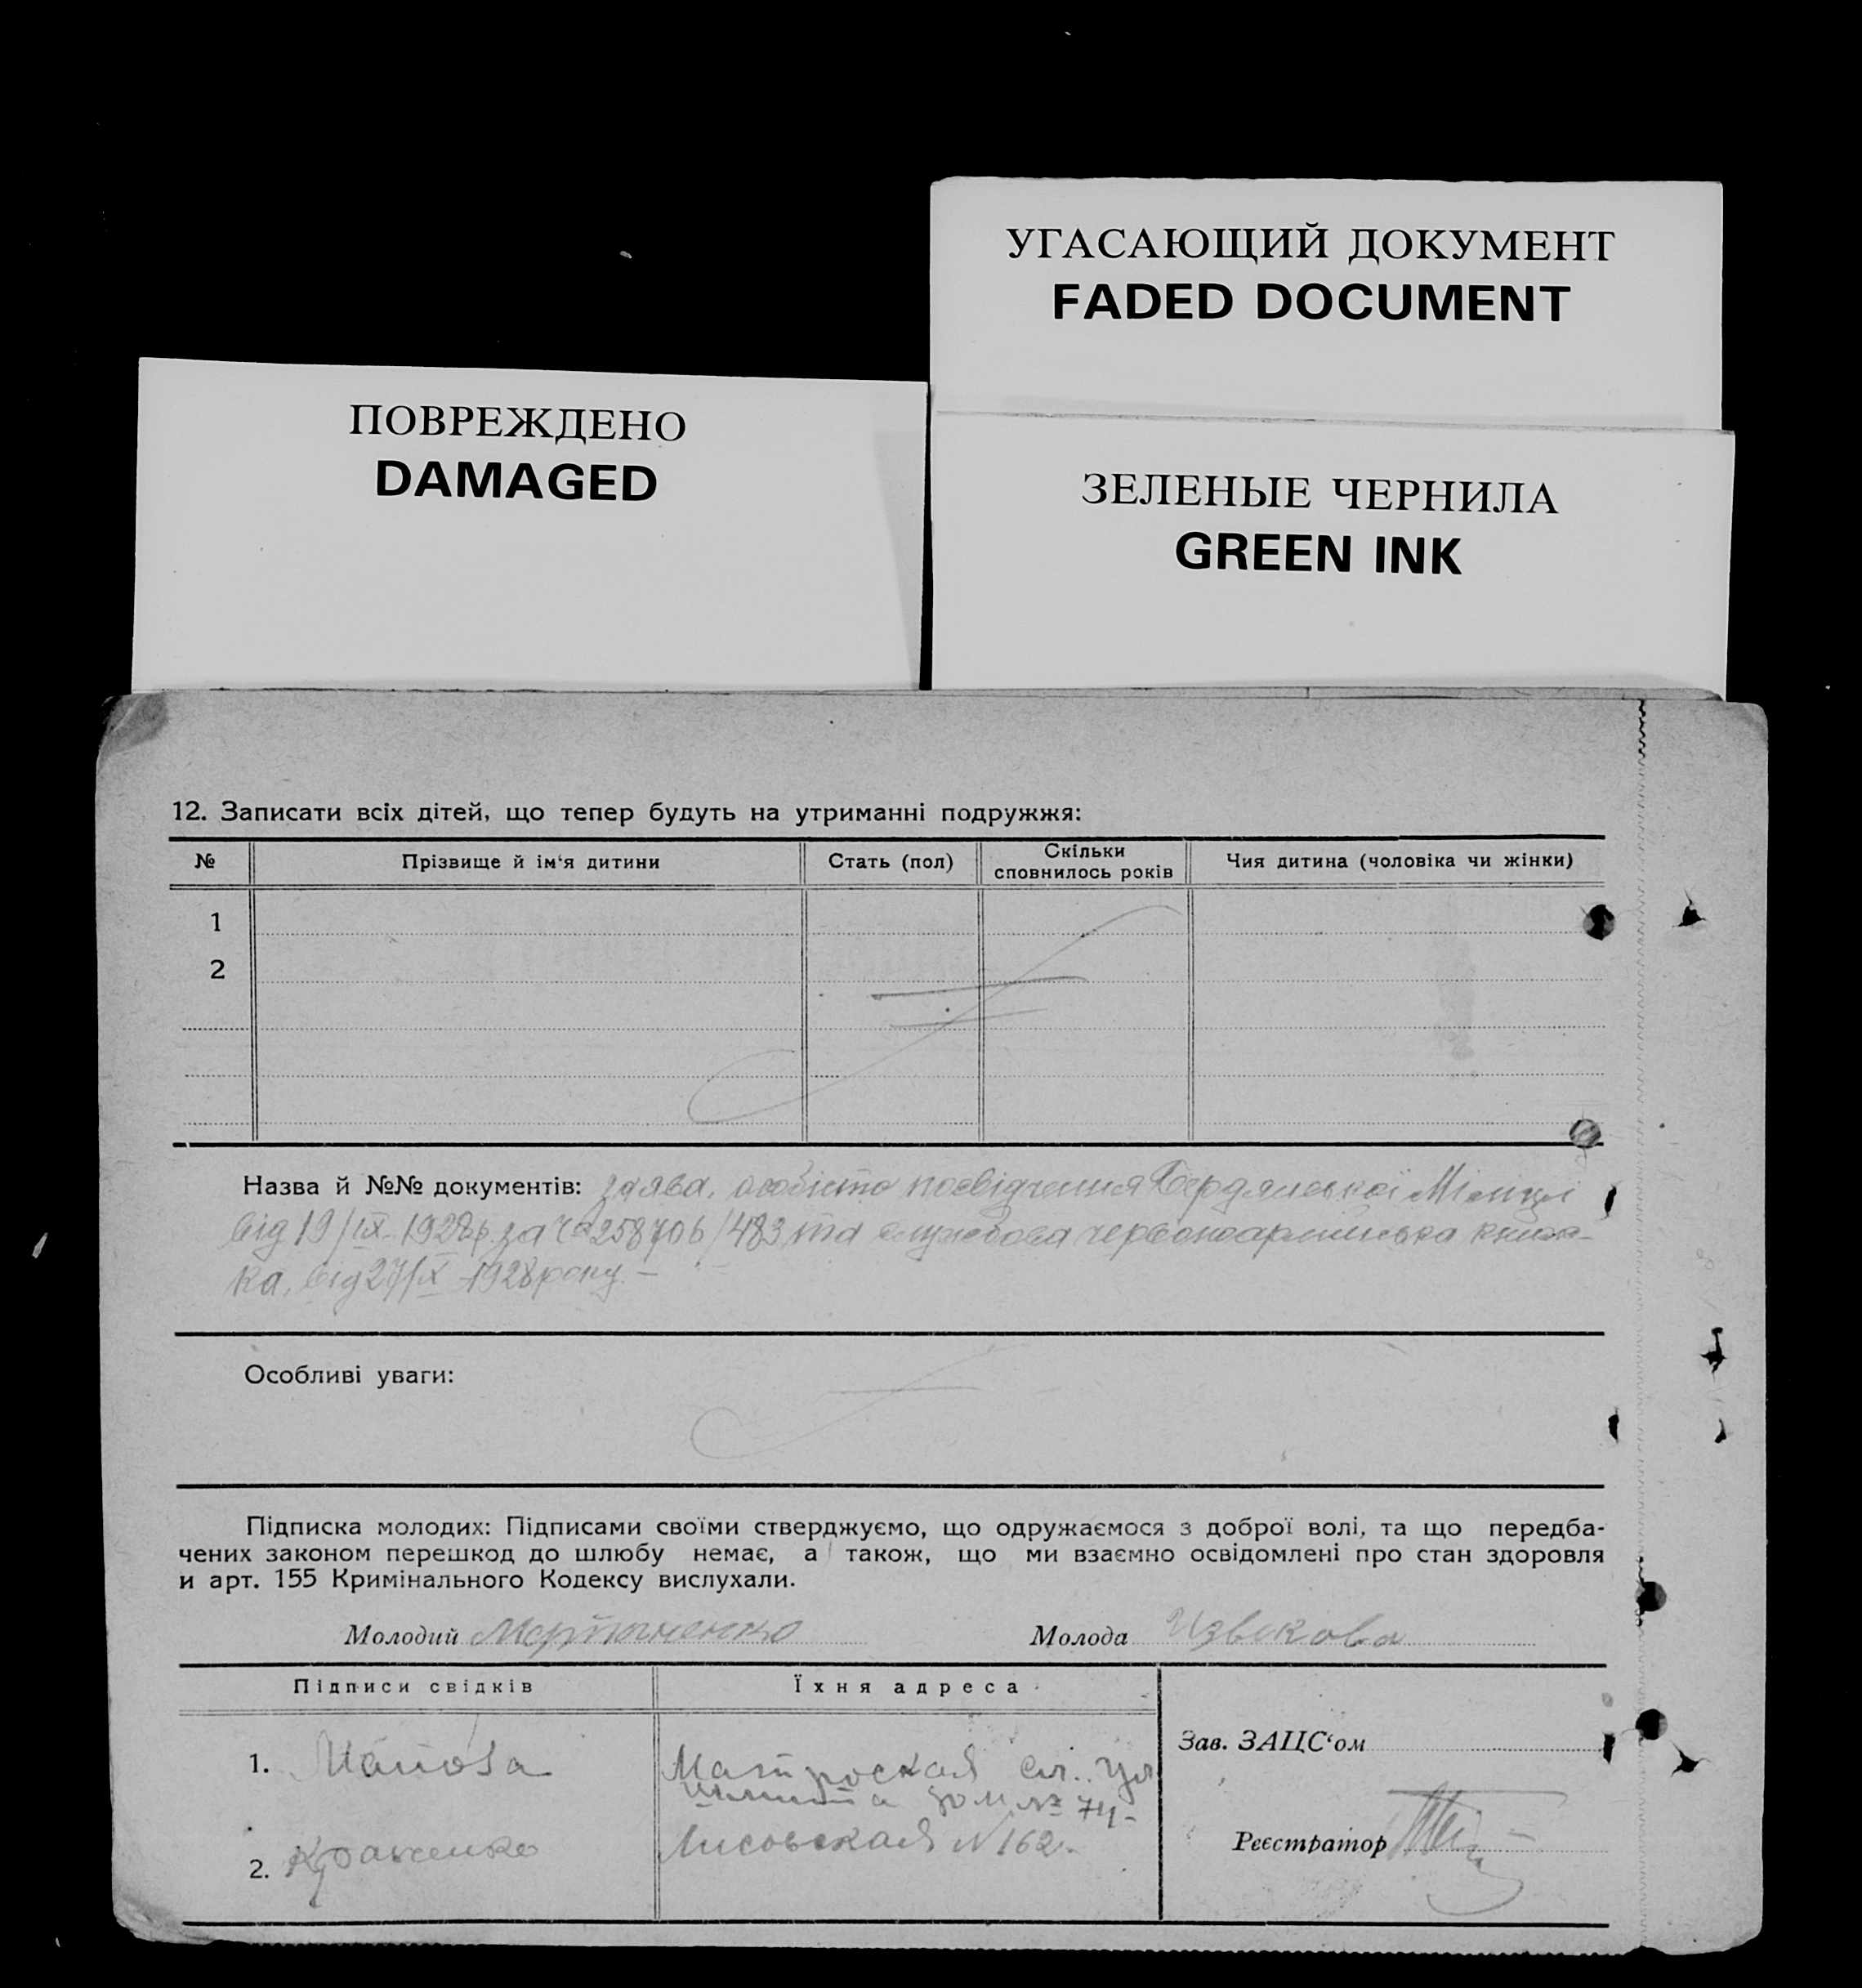 УГАСАЮЩИЙ ДОКУМЕНТ
FADED DOCUMENT
ПОВРЕЖДЕНО
DAMAGED
ЗЕЛЕНЫЕ ЧЕРНИЛА
GREEN INK
12. Записати всіх дітей, що тепер будуть на утриманні подружжя:
№ Прізвище й ім'я дитини Стать (пол) Скільки сповнилось років Чия дитина (чоловіка чи жінки)
1
2
Назва й №№ документів: заява, особисто посвідчення Бердянської Міліції
від 19/IX-1928р. за № 258706/483 та службова червоноармійська книж-
ка, від 27/X-1928 року. –
Особливі уваги:
Підписка молодих: Підписами своїми стверджуємо, що одружаємося з доброї волі, та що передба-
чених законом перешкод до шлюбу немає, а також, що ми взаємно освідомлені про стан здоровля
и арт. 155 Кримінального Кодексу вислухали.
Молодий Мартыненко Молода Извекова
Підписи свідків Їхня адреса
Зав. ЗАЦС'ом
1. Матроская сл. ул
дом № 74-
2. Кравченко Лисовская N 162-
Реєстратор